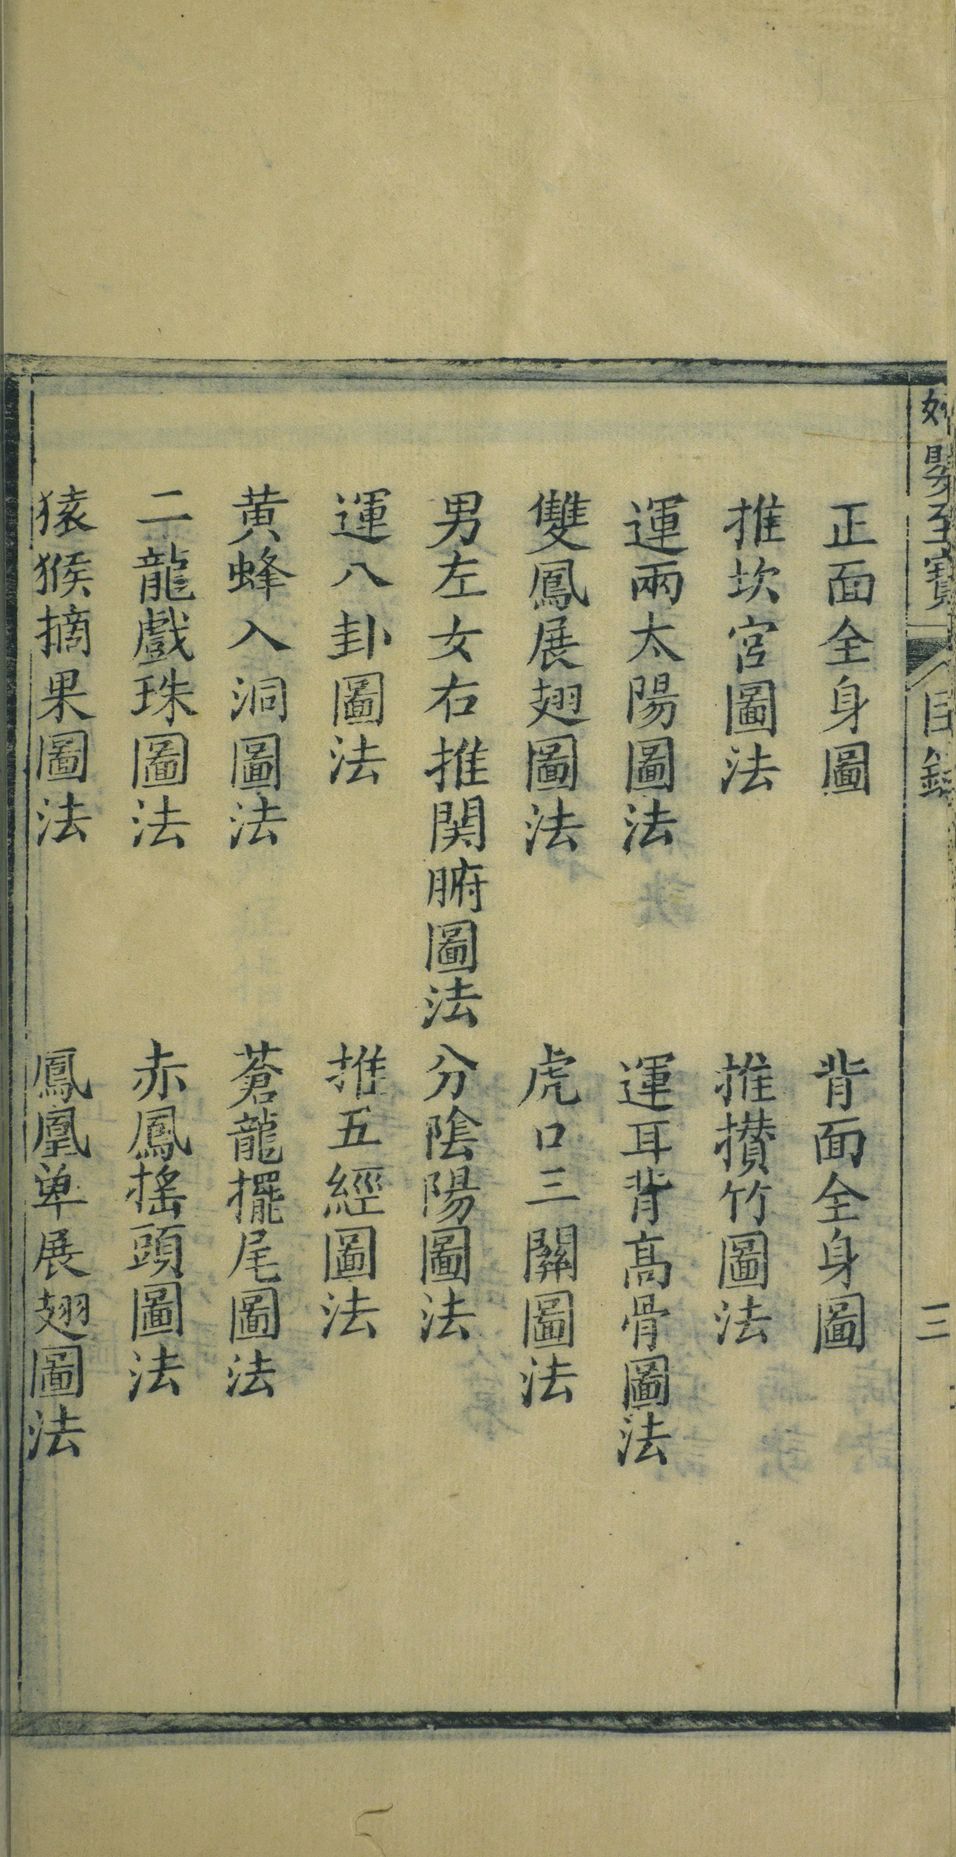 正面全身圖　背面全身圖
推坎宮圖法　推攅竹圖法
運兩太陽圖法　運耳背高骨圖法
雙鳳展翅圖法　虎口三關圖法
男左女右推関腑圖法　分陰陽圖法
運八卦圖法　推五經圖法
黄蜂入洞圖法　蒼龍擺尾圖法
二龍戲珠圖法　赤鳳搖頭圖法
猿猴摘果圖法　鳳凰单展翅圖法
至寶　目錄　三